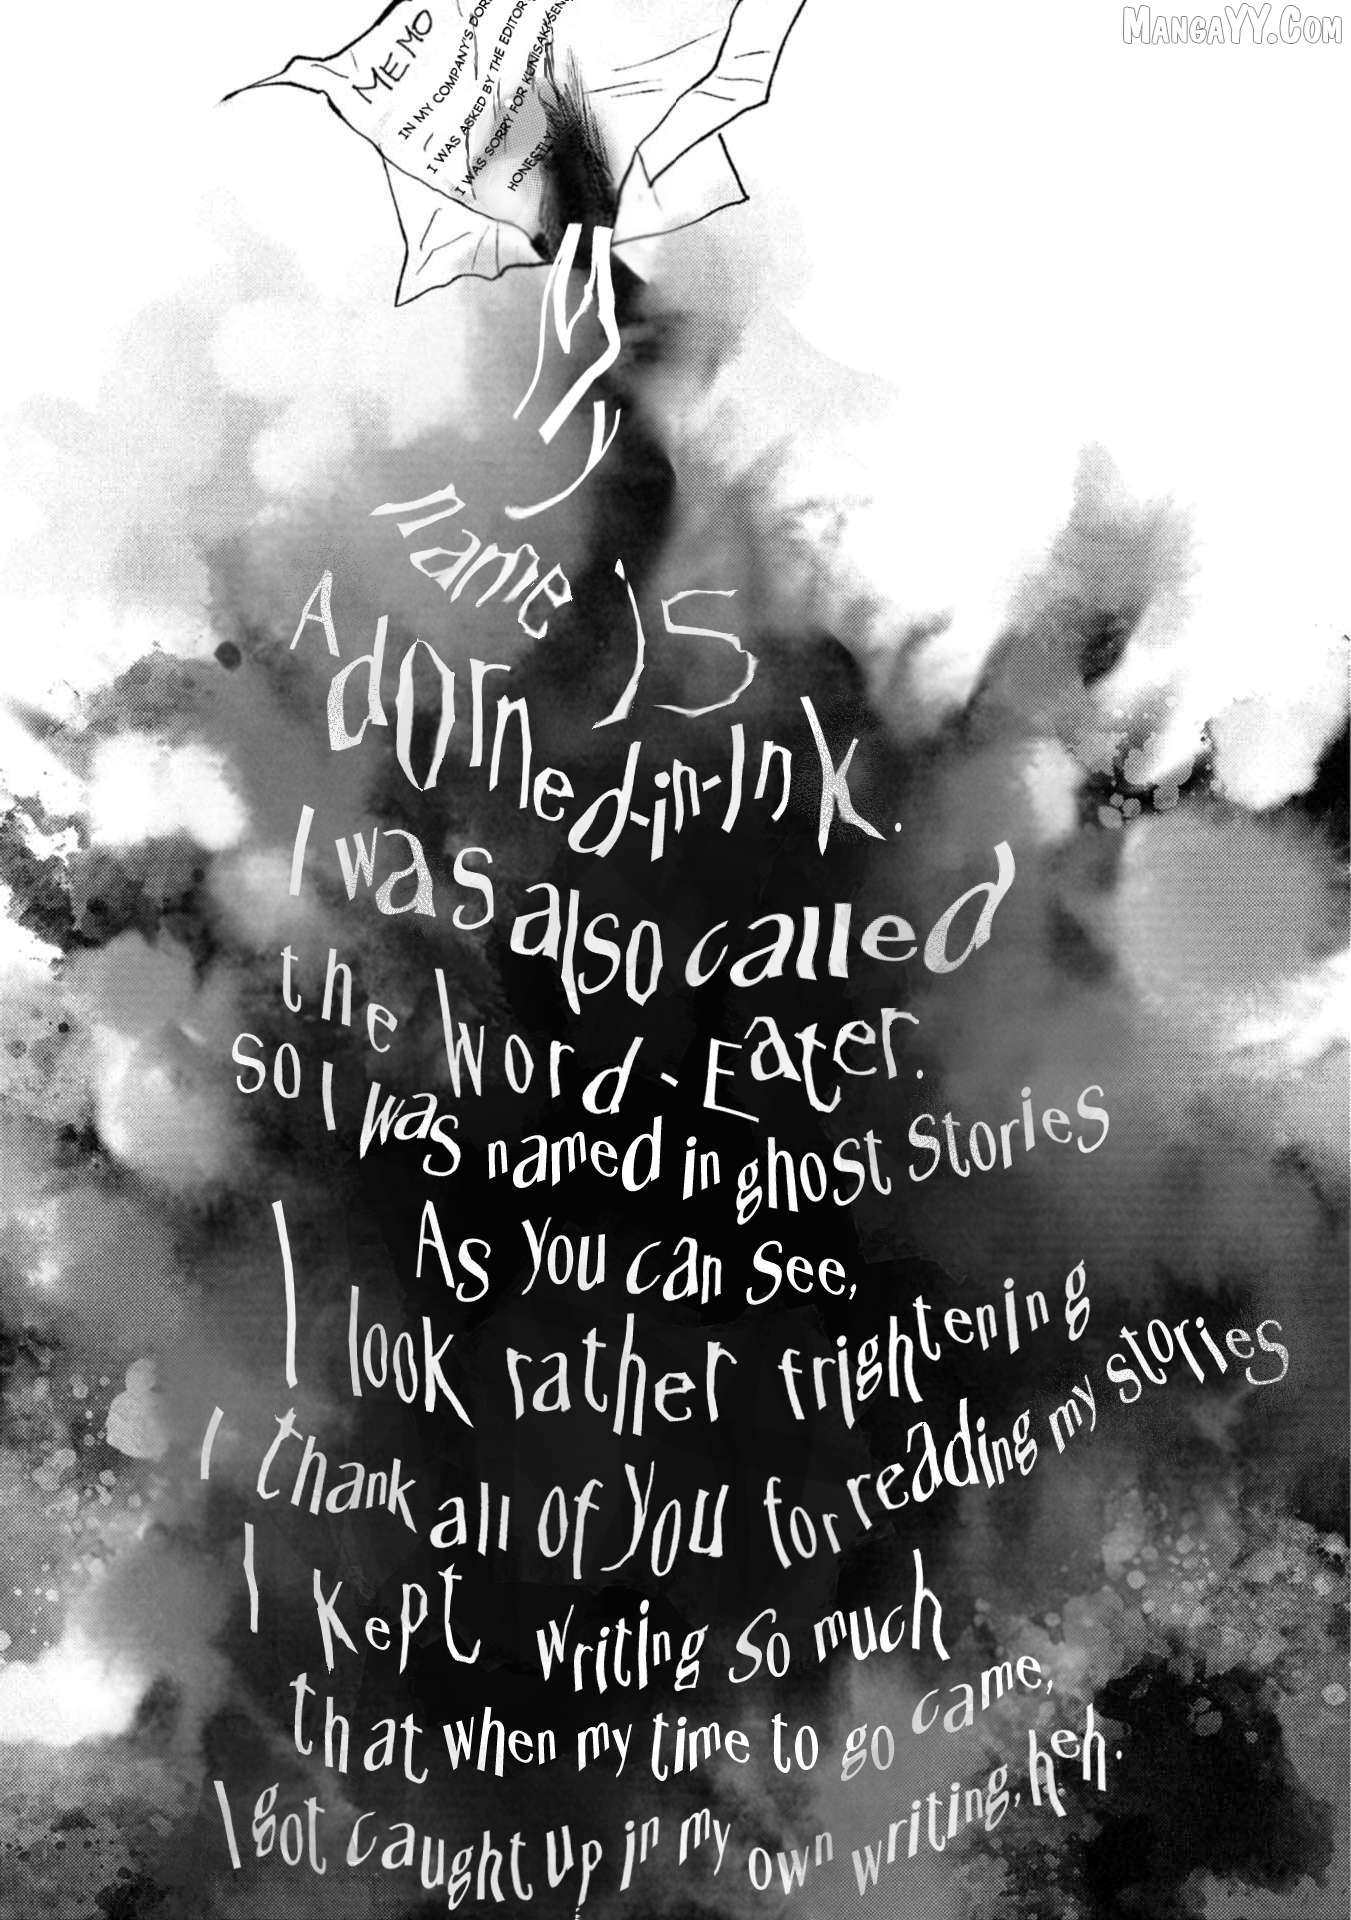 MangaYY.Com
MEMO
IN MY COMPANY'S
I WAS ASKED BY THE EDITOR
I WAS SORRY FOR KUNISAKI-SEN
HONESTLY
My
name is
Adorned-in-Ink.
I was also called
the Word-Eater.
so I was named in ghost stories
As you can see,
I look rather frightening
I thank all of you for reading my stories
I kept writing so much
that when my time to go came,
I got caught up in my own writing, heh.